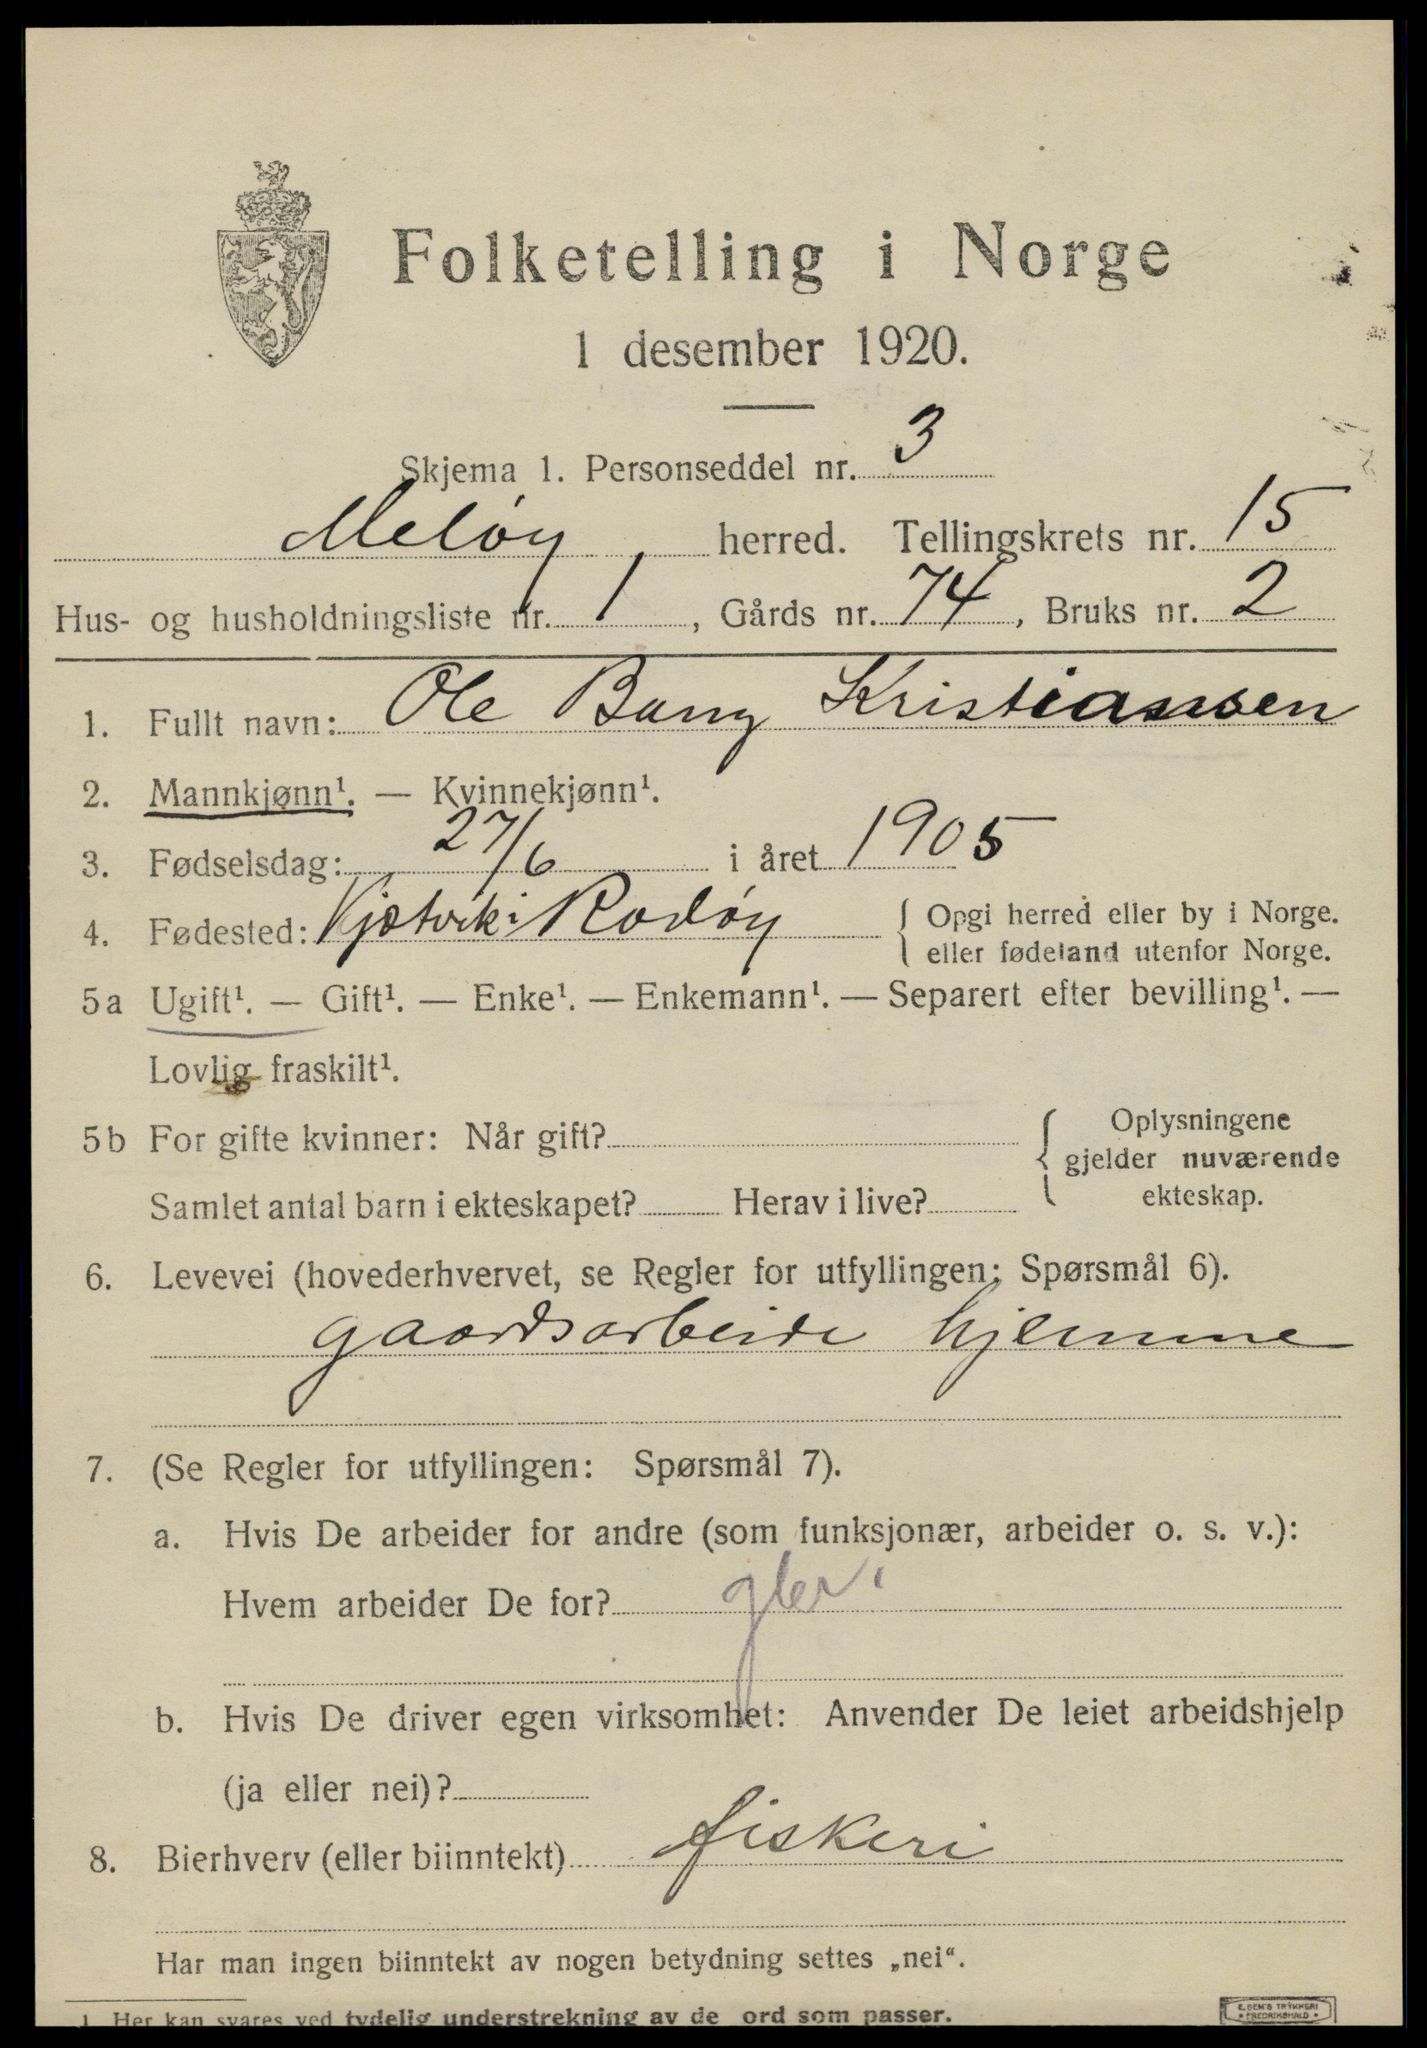 Folketelling i Norge
1 desember 1920.
Skjema 1. Personseddel nr. 3
Meløy herred. Tellingskrets nr. 15
Hus- og husholdningsliste nr. 1, Gårds nr. 74, Bruks nr. 2
1. Fullt navn: Ole Bang Kristiansen
2. Mannkjønn¹. — Kvinnekjønn¹.
3. Fødselsdag: 27/6 i året 1905
4. Fødested: Kjøtvik i Rødøy { Opgi herred eller by i Norge.
eller fødeland utenfor Norge.
5a Ugift¹. — Gift¹. — Enke¹. — Enkemann¹. — Separert efter bevilling¹. —
Lovlig fraskilt¹.
5b For gifte kvinner: Når gift?
Samlet antal barn i ekteskapet? Herav i live?
{ Oplysningene
gjelder nuværende
ekteskap.
6. Levevei (hovederhvervet, se Regler for utfyllingen: Spørsmål 6).
gaardsarbeide hjemme
7. (Se Regler for utfyllingen: Spørsmål 7).
a. Hvis De arbeider for andre (som funksjonær, arbeider o. s. v.):
Hvem arbeider De for?
b. Hvis De driver egen virksomhet: Anvender De leiet arbeidshjelp
(ja eller nei)?
8. Bierhverv (eller biinntekt) fiskeri
Har man ingen biinntekt av nogen betydning settes „nei“.
1. Her kan svares ved tydelig understrekning av de ord som passer.
E. SEM'S TRYKKERI
FREDRIKSHALD